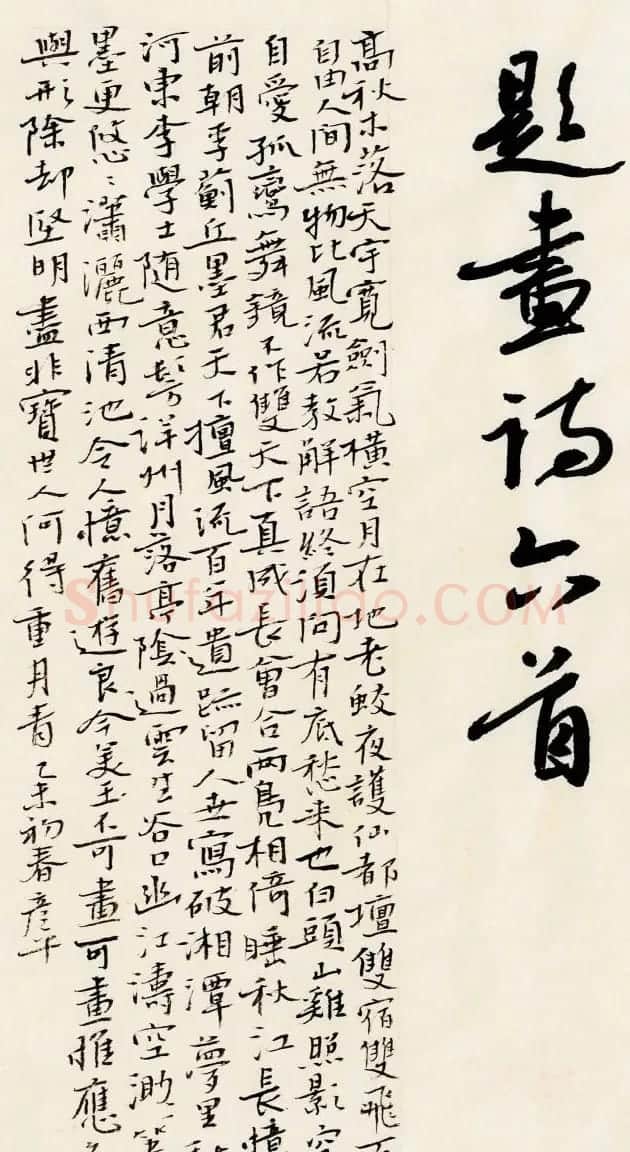 題畫詩六首
高秋木落天宇寬劍氣橫空月在地老蛟夜護仙都壇雙宿雙飛
自由人間無物比風流若教解語終須問有底愁來也白頭山雞照影空
自愛孤鸞舞鏡不作雙天下真成長會合兩鳧相倚睡秋江長憶
前朝李薊丘墨君天下擅風流百年遺跡留人世寫破湘潭夢里秋
河東李學士隨意學洋州月落亭陰過雲生谷口幽江濤空渺渺筆
墨更悠悠瀟灑西清池令人憶舊遊良金美玉不可畫可畫雖應
與形除却堅明盡非寶世人何得重丹青乙未初春彥平
Shufaziliao.COM